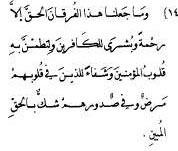 ١٤) وما جعلنا هذا الفرقان الحق إلاَّ
رحمة وبشرى للكافرين ولتطمئن به
قلوب المؤمنين وشفاءً للذين في قلوبهم
مرض وفي صدورهم شك بالحق
المبين.